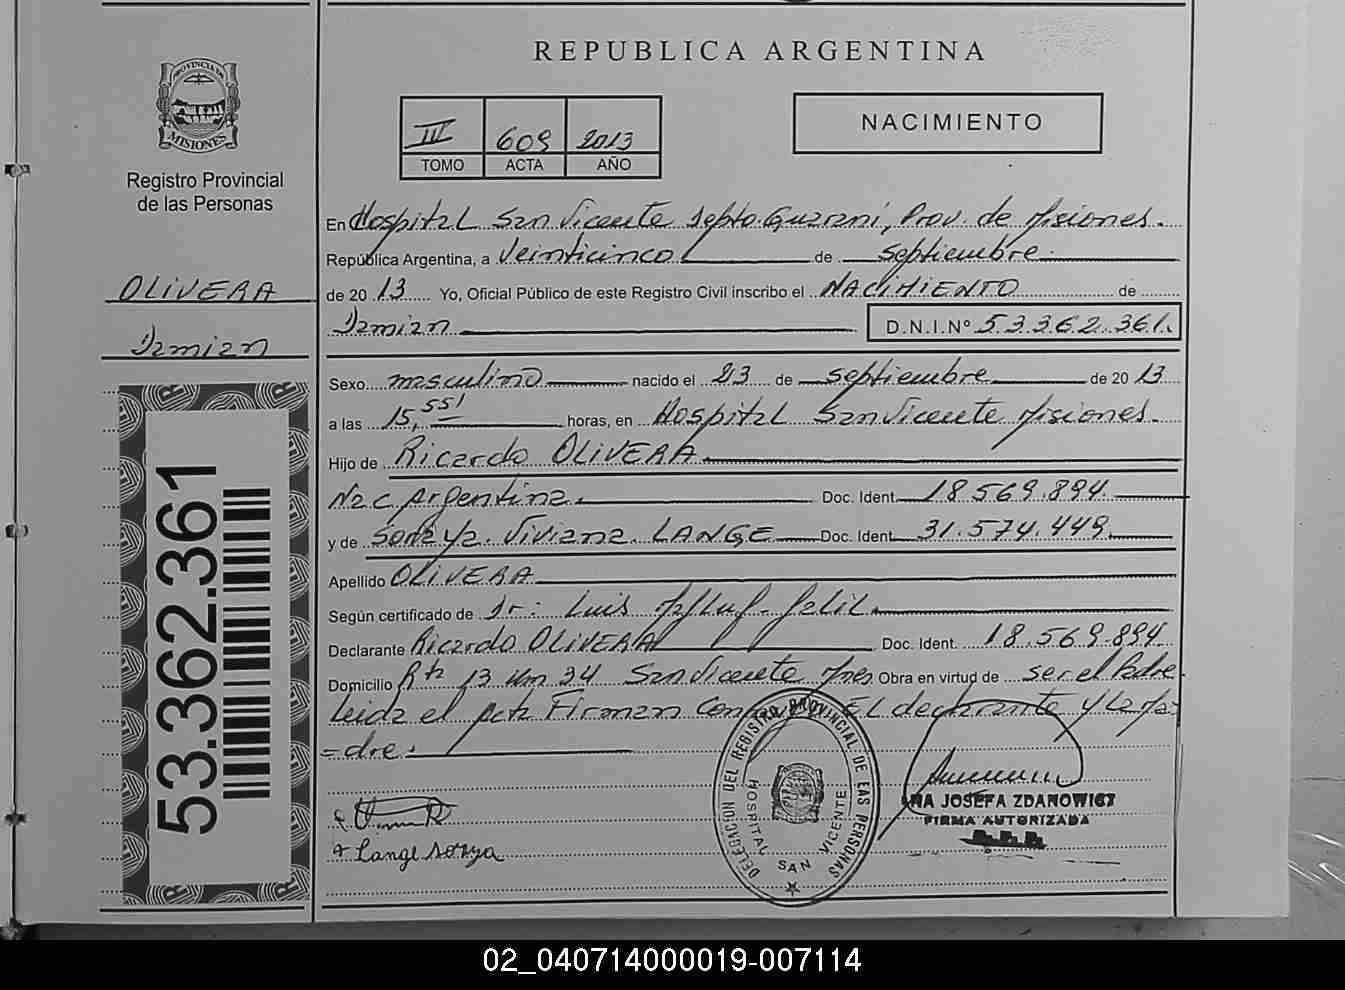 REPUBLICA ARGENTINA
PROVINCIA DE
MISIONES
Registro Provincial
de las Personas
IV 609 2013
TOMO ACTA AÑO
NACIMIENTO
En Hospital San Vicente Depto. Guarani, Prov. de Misiones.
República Argentina, a Veinticinco de septiembre
OLIVERA
de 20 13 Yo, Oficial Público de este Registro Civil inscribo el NACIMIENTO de
Damian D.N.I.Nº 53.362.361.
Damian
Sexo masculino nacido el 23 de septiembre de 20 13
a las 15,55 horas, en Hospital San Vicente Misiones.
Hijo de Ricardo OLIVERA
Nac Argentina. Doc. Ident. 18.569.894
y de Soraya Viviana LANGE Doc. Ident. 31.574.449
Apellido OLIVERA
Según certificado de Dr: Luis
Declarante Ricardo OLIVERA Doc. Ident. 18.569.894
Domicilio Rta 13 Km 34 San Vicente Mnes Obra en virtud de ser el Padre
Leida el acta Firman El declarante y la Ma-
=dre.
53.362.361
DELEGACION DEL REGISTRO PROVINCIAL DE LAS PERSONAS
HOSPITAL SAN VICENTE
ANA JOSEFA ZDANOWICZ
FIRMA AUTORIZADA
Lange soraya
02_040714000019-007114